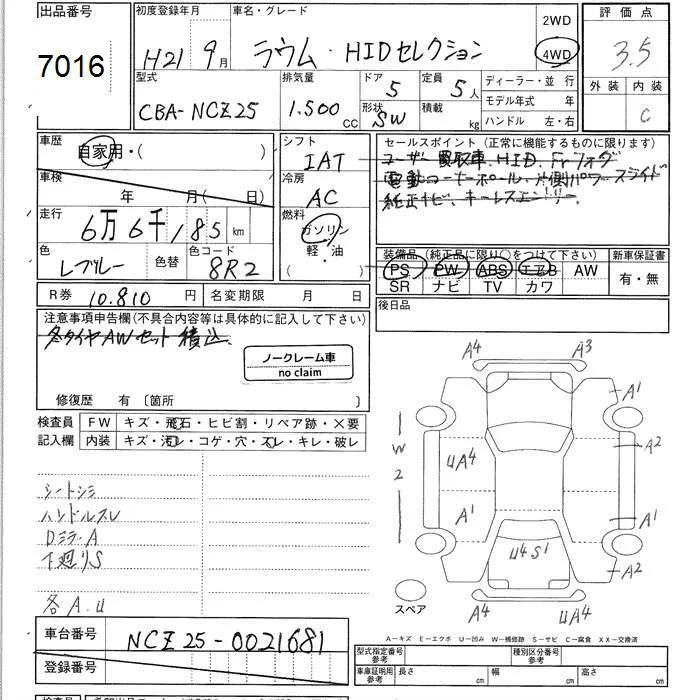 出品番号 初度登録年月 車名・グレード 2WD 評価点
7016 H21 9月 ラウム・HIDセレクション 4WD 3.5
型式 排気量 ドア 定員 ディーラー・並 行 外装 内装
CBA-NCZ25 1.500 CC 5 5人 モデル年式 年 C
形状 SW 積載 kg ハンドル 左・右
車歴 自家用・( ) シフト セールスポイント (正常に機能するものに限ります)
IAT ユーザー買取車、HID、Frフォグ
車検 年 月( 日) 冷房 電動コーナーポール・片側パワースライド
AC 純正ナビ、キーレスエントリー
走行 6万6千185km 燃料
ガソリン
色 色替 色コード 軽・油 装備品 (純正品に限り○をつけて下さい) 新車保証書
Lブルー 8R2 PS PW ABS エアB AW 有・無
SR ナビ TV カワ
R券 10.810円 名変期限 月 日 後日品
注意事項申告欄(不具合内容等は具体的に記入して下さい)
冬タイヤAWセット積込
ノークレーム車
no claim
修復歴 有 〔箇所 〕
検査員 FW キズ・飛石・ヒビ割・リペア跡・×要
記入欄 内装 キズ・汚レ・コゲ・穴・スレ・キレ・破レ
A4 A3
A1
W2 A2
UA4
シートシミ
ハンドルスレ A1 A1
DミラーA
下廻りS U4S1 A2
各A.U
スペア A4 UA4
A-キズ E-エクボ U-凹み W-補修跡 S-サビ C-腐食 XX-交換済
車台番号 NCZ25-0021681
型式指定番号 参考 種別区分番号 参考
登録番号 車庫証明用 参考 長さ cm 幅 cm 高さ cm
検査員